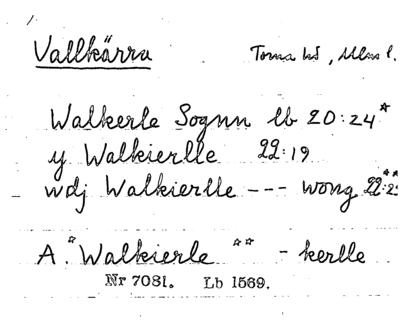 Vallkärra Torna hd, Mlm l.
Walkerle Sognn lb 20:24*
y Walkierlle 22:19
wdj Walkierlle --- wong 22:2
A. *Walkierle ** - kerlle
Nr 7081. Lb 1569.